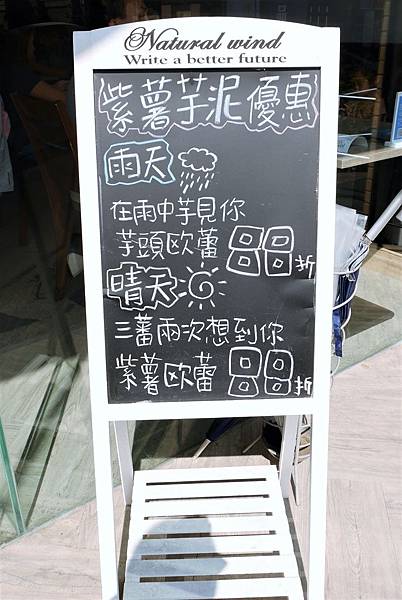 Natural wind
Write a better future
紫薯芋泥優惠
雨天
在雨中芋見你
芋頭欧蕾 88折
晴天
三蕃兩次想到你
紫薯欧蕾 88折